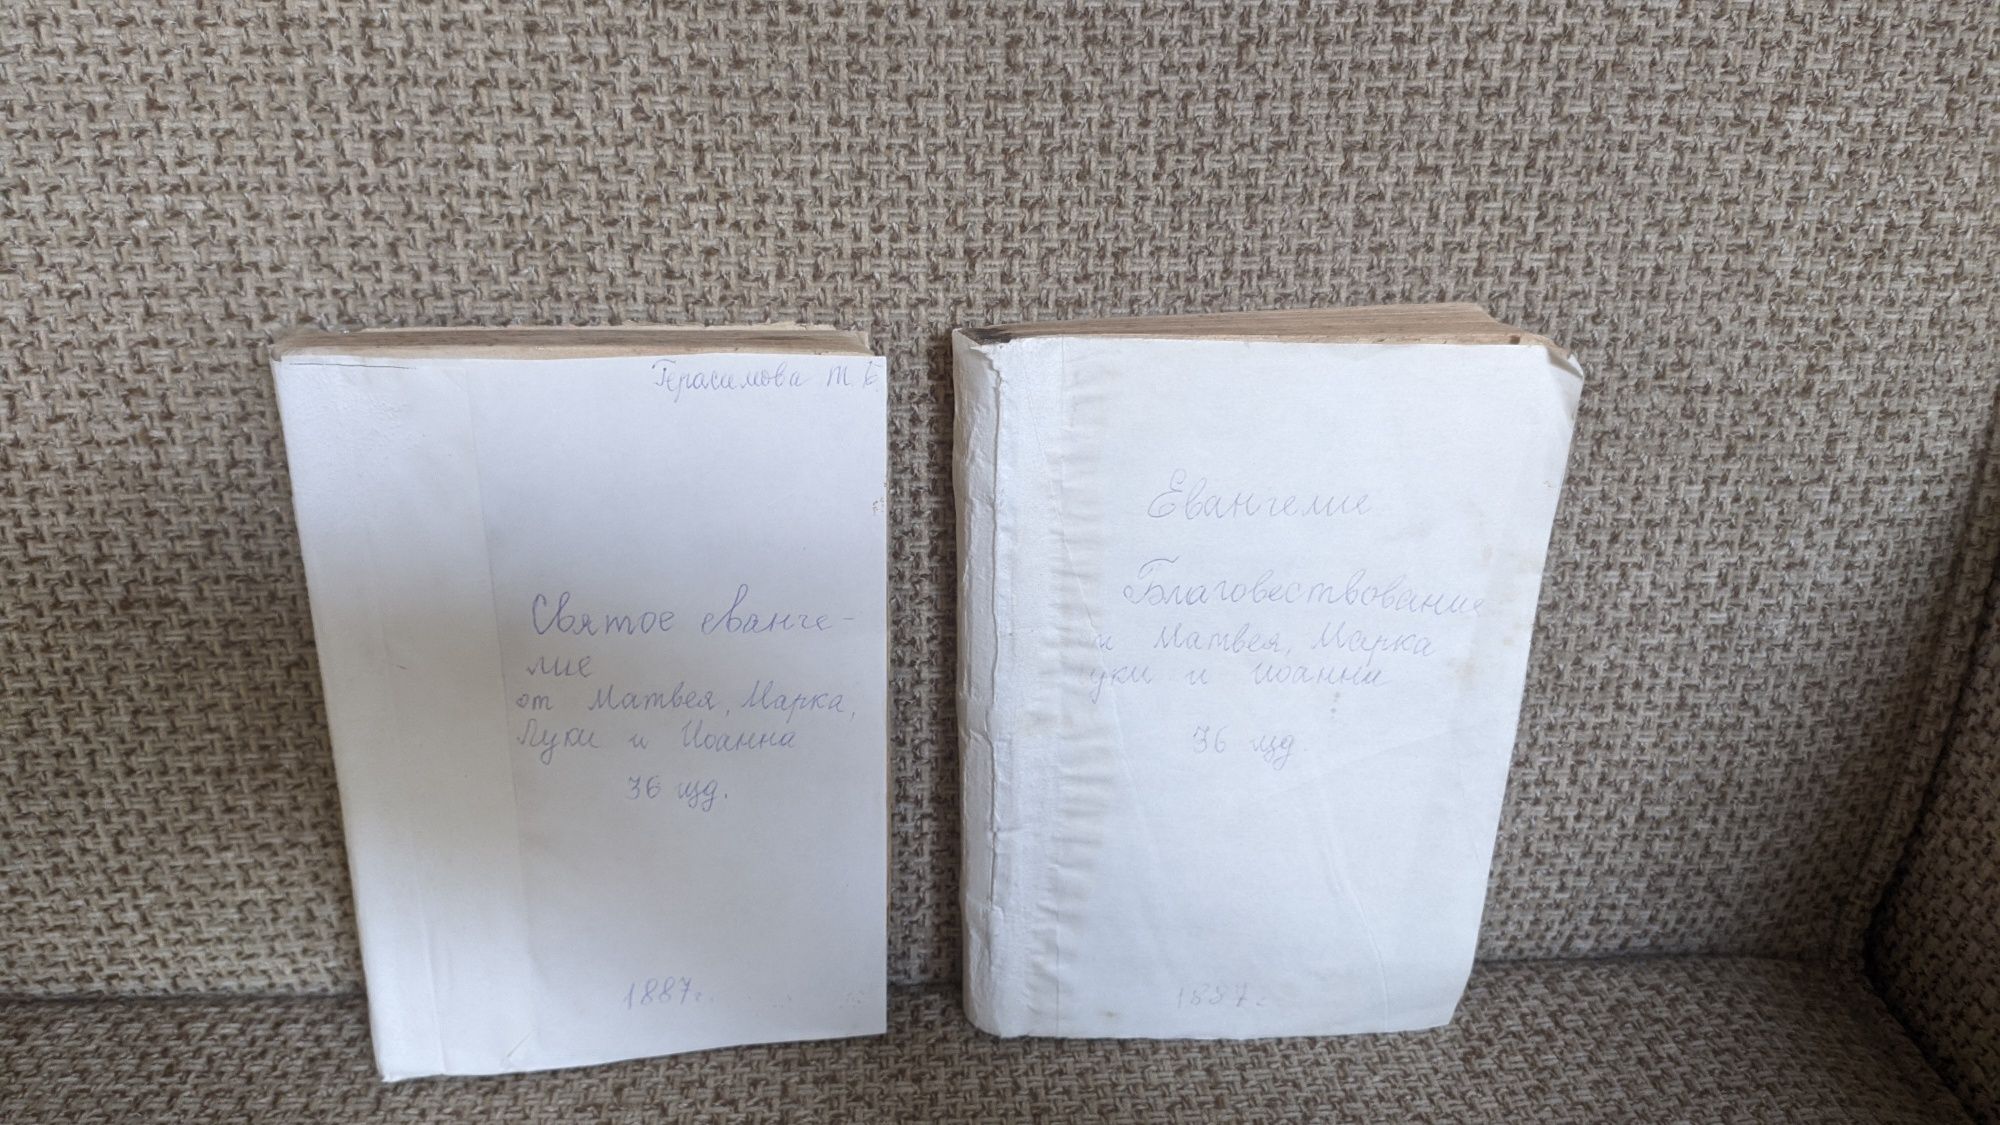 Герасимова т Б
Святое еванге-
лие
от Матвея, Марка,
Луки и Иоанна
36 изд.
1887г.
Евангелие
Благовествование
и Матвея, Марка
уки и Иоанни
36 изд.
1887г